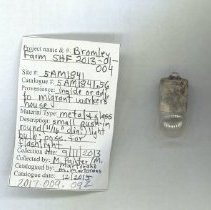 Project name & #: Bromley
Farm SHF 2013-01-
004
Site #: 5AM1841
Catalogue #: 5AM1841.56
Provenience: inside or adj.
to migrant workers
house
Material Type: metal & glass
Description: small push-in
round (4/16" dia.) light
bulb; poss. for
flashlight
Collection date: 9/11/2013
Collected by:
Catalogued by:
Catalogue date: 12/2013
2017.009.092